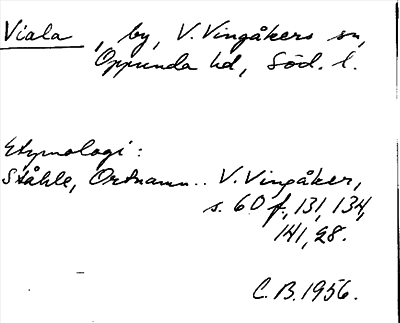 Viala, by, V. Vingåkers sn,
Oppunda hd, Söd. l.
Etymologi:
Ståhle, Ortnamn.. V. Vingåker,
s. 60 f., 131, 134,
141, 98.
C. B. 1956.